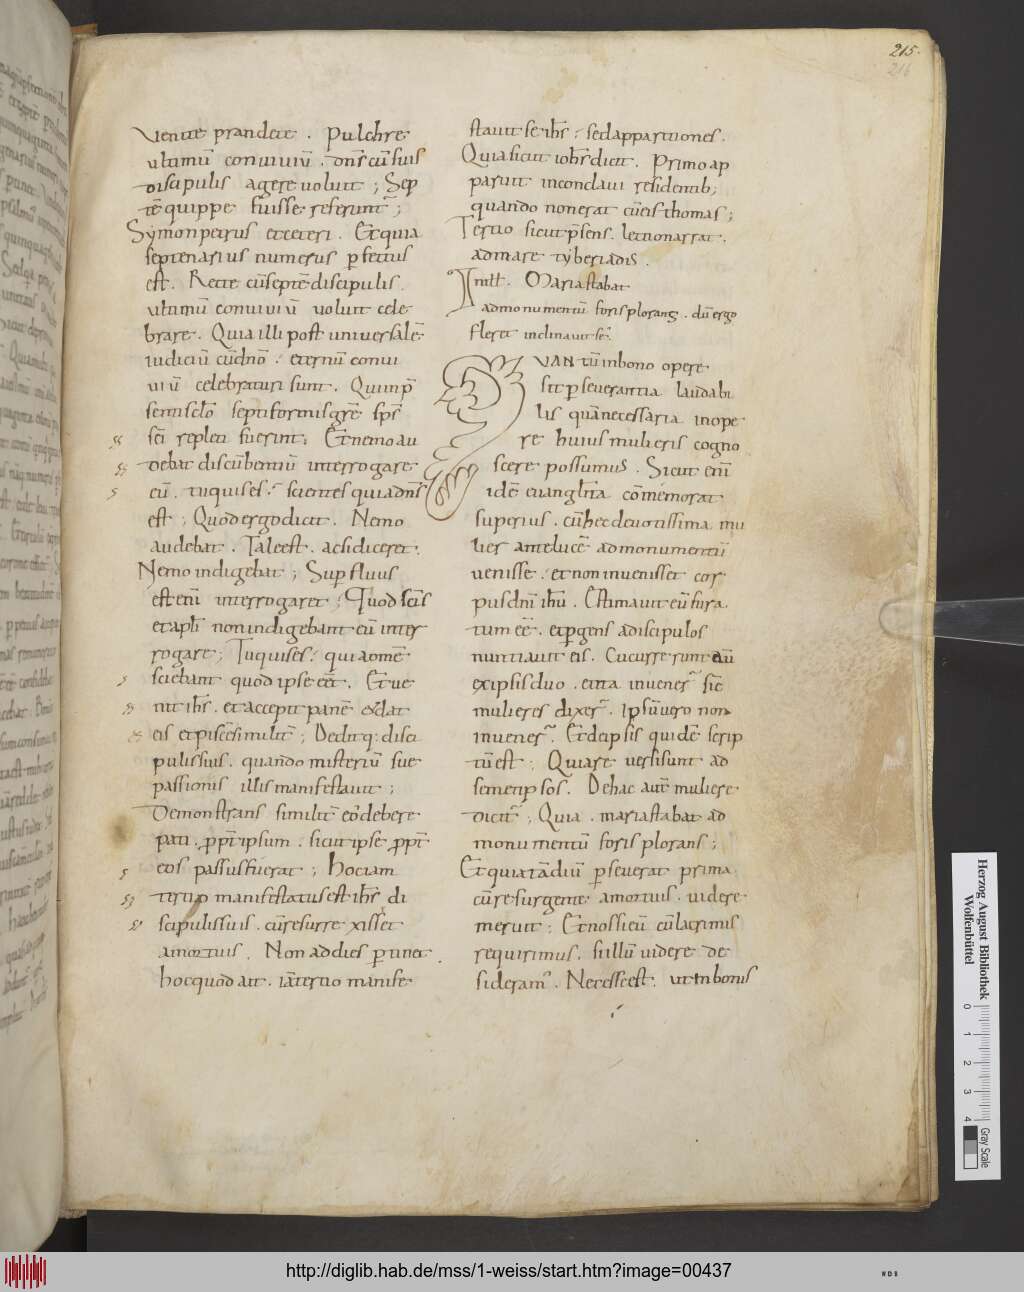 215.
216
Venite prandete . Pulchre
ultimū conviviū . dn̄s cū suis
discipulis agere voluit ; Sep
tē quippe fuisse referunt̄ ;
Symon petrus et ceteri . Et quia
septenarius numerus p̄fectus
est . Recte cū septē discipulis .
ultimū conviviū voluit cele
brare . Quia illi post universalē
iudiciū cū dn̄o . eternū convi
viū celebraturi sunt . Qui in p̄
senti sc̄lo septiformis gr̄e sp̄s
sc̄i repleti fuerint ; Et nemo au
debat discūbentiū interrogare
eū . tu quis es ? scientes quia dn̄s
est ; Quod ergo dicit . Nemo
audebat . Tale est . acsi diceret .
Nemo indigebat ; Supfluus
est enī interrogaret ; Quod scīs
et apl̄i non indigebant eū inter
rogare ; Tu quis es ? quia om̄e
sciebant quod ipse eēt . Et ve
nit ih̄s . et accepit panē & dat
eis et piscē similit̄ ; Dedit q; disci
pulis suis . quando misteriū sue
passionis illis manifestavit ;
Demonstrans similit̄ eos debere
pati . ppt̄ ipsum . sicut ipse ppt̄
eos passus fuerat ; Hoc iam
tertio manifestatus est ih̄s di
scipulis suis . cū resurrexisset
a mortuis . Non ad dies ptinet .
hoc quod ait . iā tertio manife
stavit se ih̄s ; sed apparitiones .
Quia sicut ioh̄s dicit . Primo ap
paruit in conclavi residentib;
quando non erat cū eis thomas ;
Tertio sicut p̄sens . lectio narrat .
ad mare tyberiadis .
In ill̄ . Maria stabat
ad monumentū foris plorans . dū ergo
fleret inclinavit se .
QUAN tū in bono opere
sit pseverantia laudabi
lis quā necessaria in ope
re huius mulieris cogno
scere possumus . Sicut enī
idē evanglista cōmemorat
superius . cū hec devotissima mu
lier antelucē ad monumentū
venisse . et non invenisset cor
pus dn̄i ih̄u . Estimavit eū fura
tum eē . et pgens ad discipulos
nuntiavit eis . Cucurrerunt aū
ex ipsis duo . et ita invener̄ sic̄
mulieres dixer̄ . Ipsū vero non
invener̄ . Et de ipsis quidē scrip
tū est ; Quare versi sunt ad
semetipsos . De hac autē muliere
dicit̄ ; Quia . maria stabat ad
monumentū foris plorans ;
Et quia tādiū pseverat prima
cū resurgente a mortuis . videre
meruit ; Et nos si eū cū lacrimis
requirimus . si illū videre de
sideram̄ . Necesse est . ut in bonis
Herzog August Bibliothek
Wolfenbüttel
0 1 2 3 4
Gray Scale
http://diglib.hab.de/mss/1-weiss/start.htm?image=00437